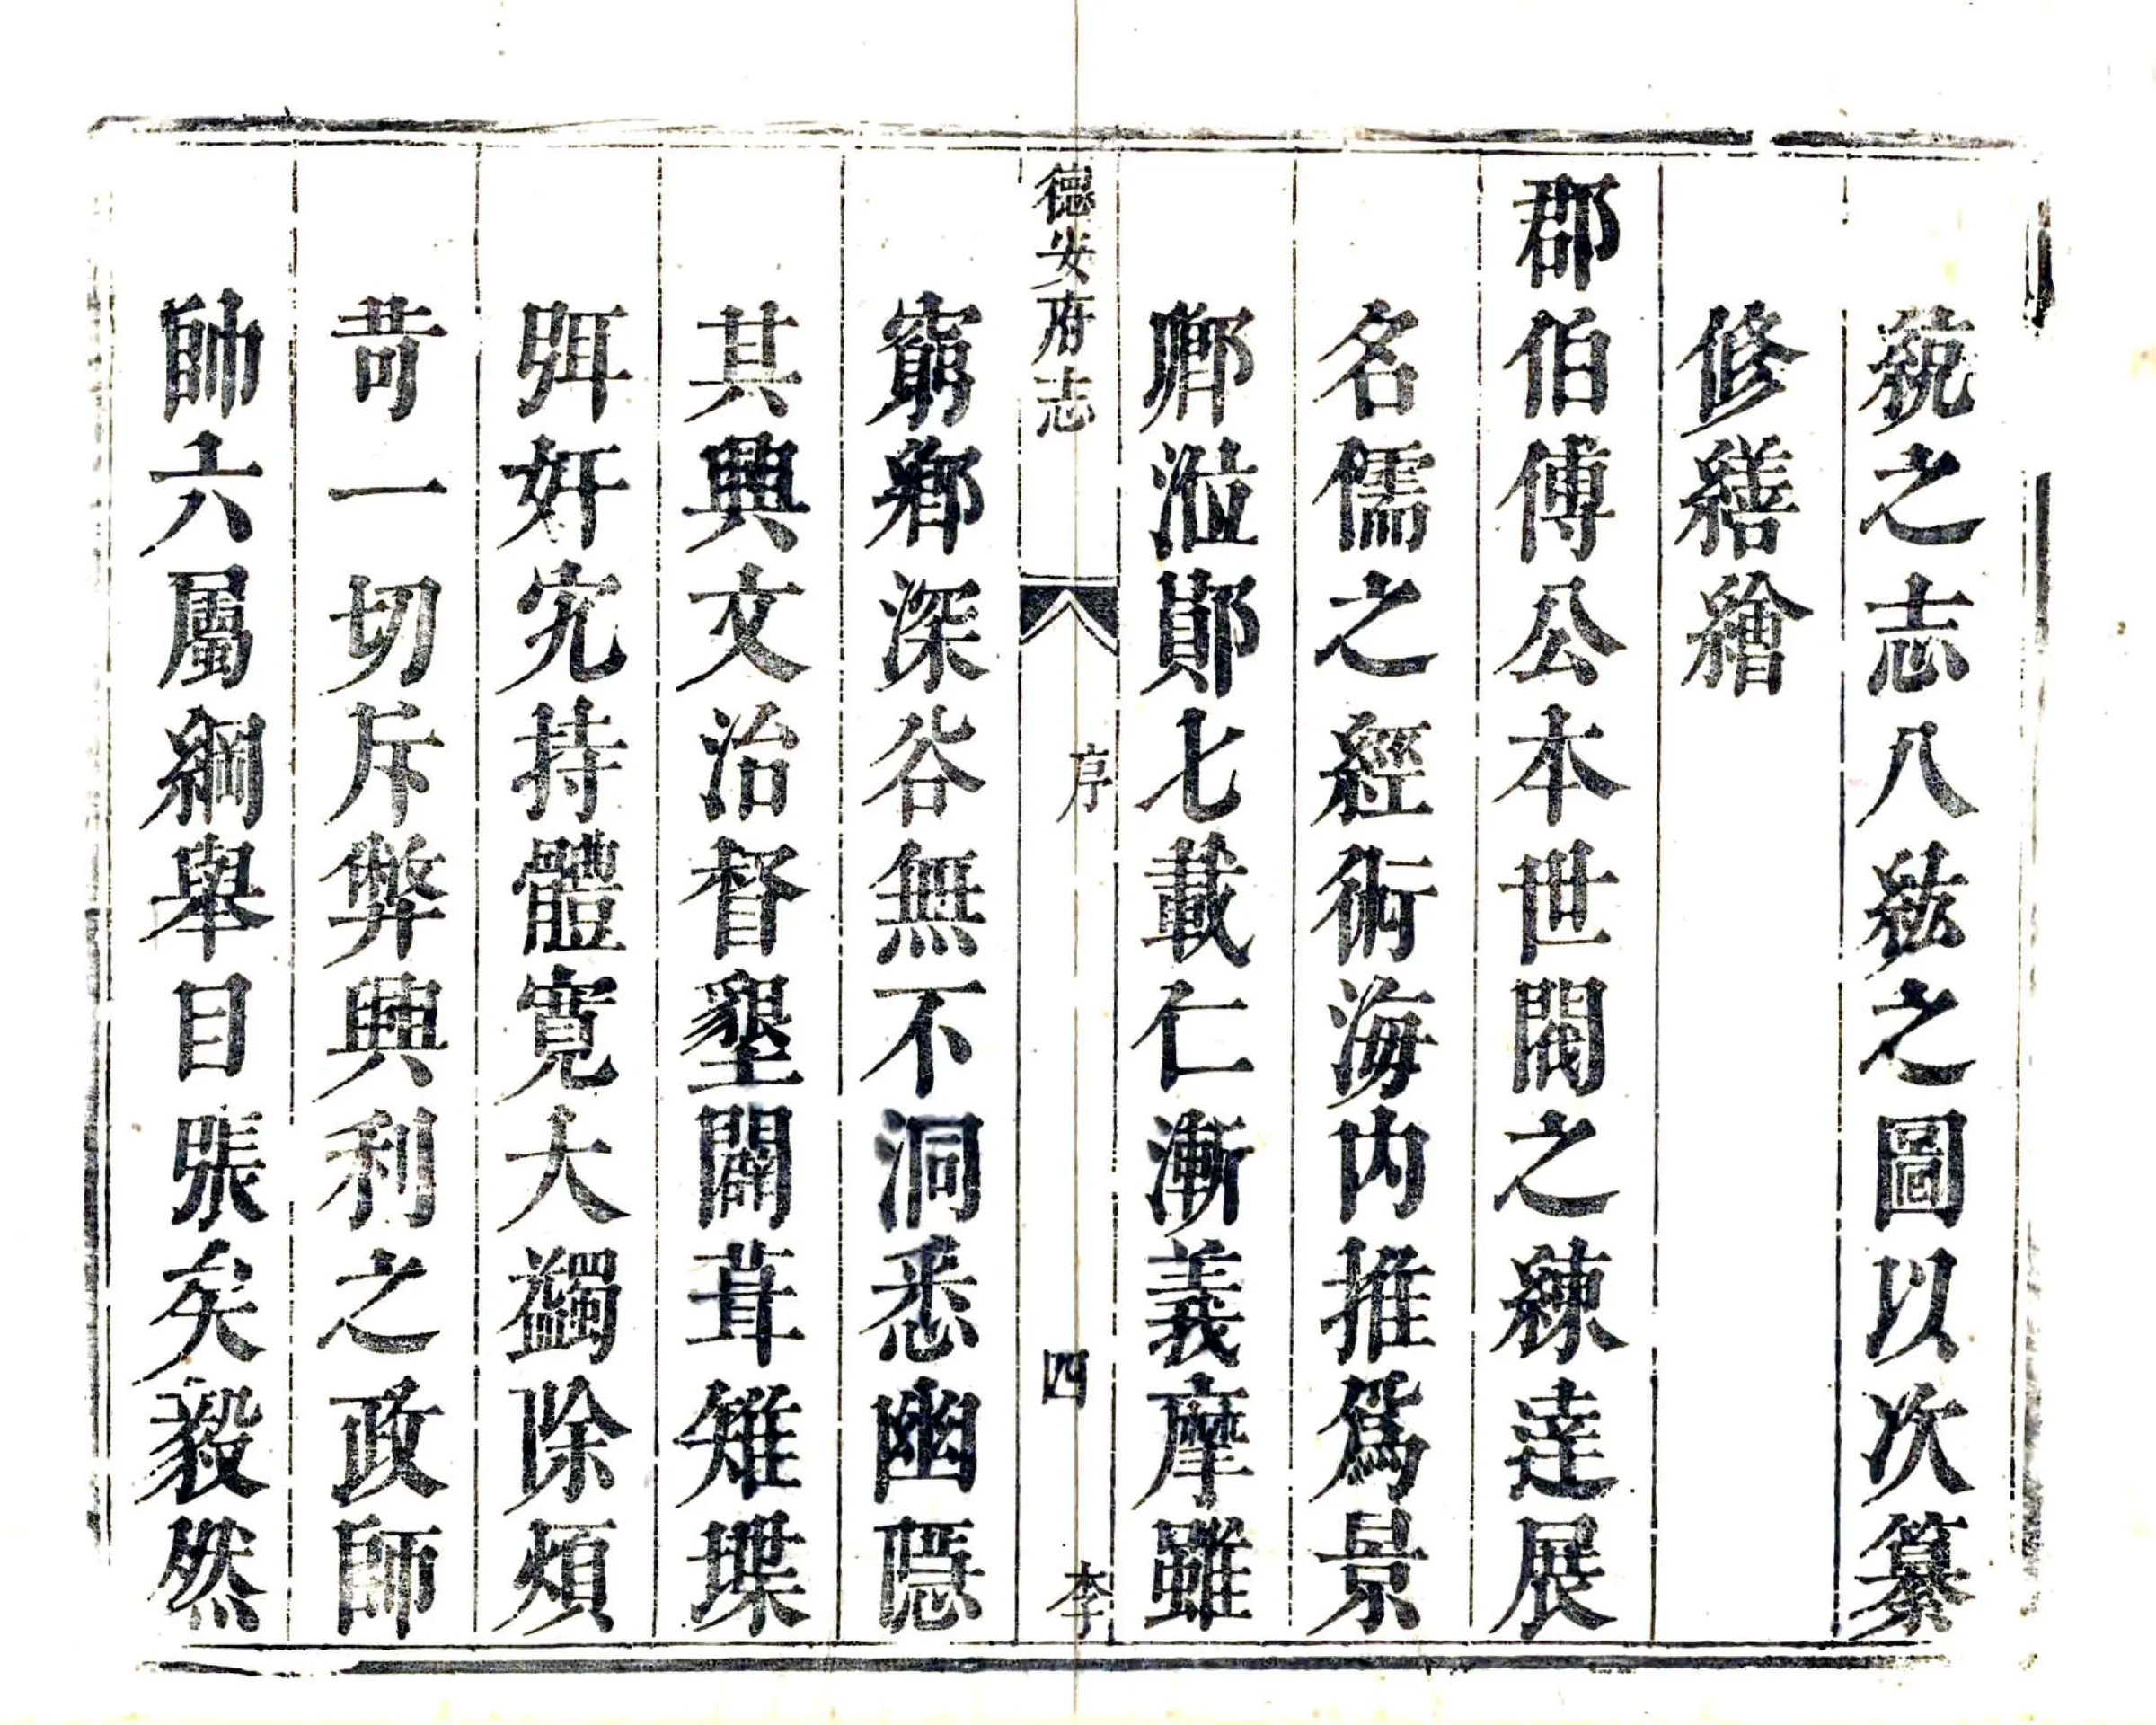 統之志八紘之圖以次纂
修繕繪
郡伯傅公本世閥之練達展
名儒之經術海内推爲景
卿涖鄖七載仁漸義摩雖
德安府志 序 四 李
窮鄉深谷無不洞悉幽隱
其興文治督墾闢葺雉堞
弭奸宄持體寬大蠲除煩
苛一切斥弊興利之政師
帥六屬綱舉目張矣毅然